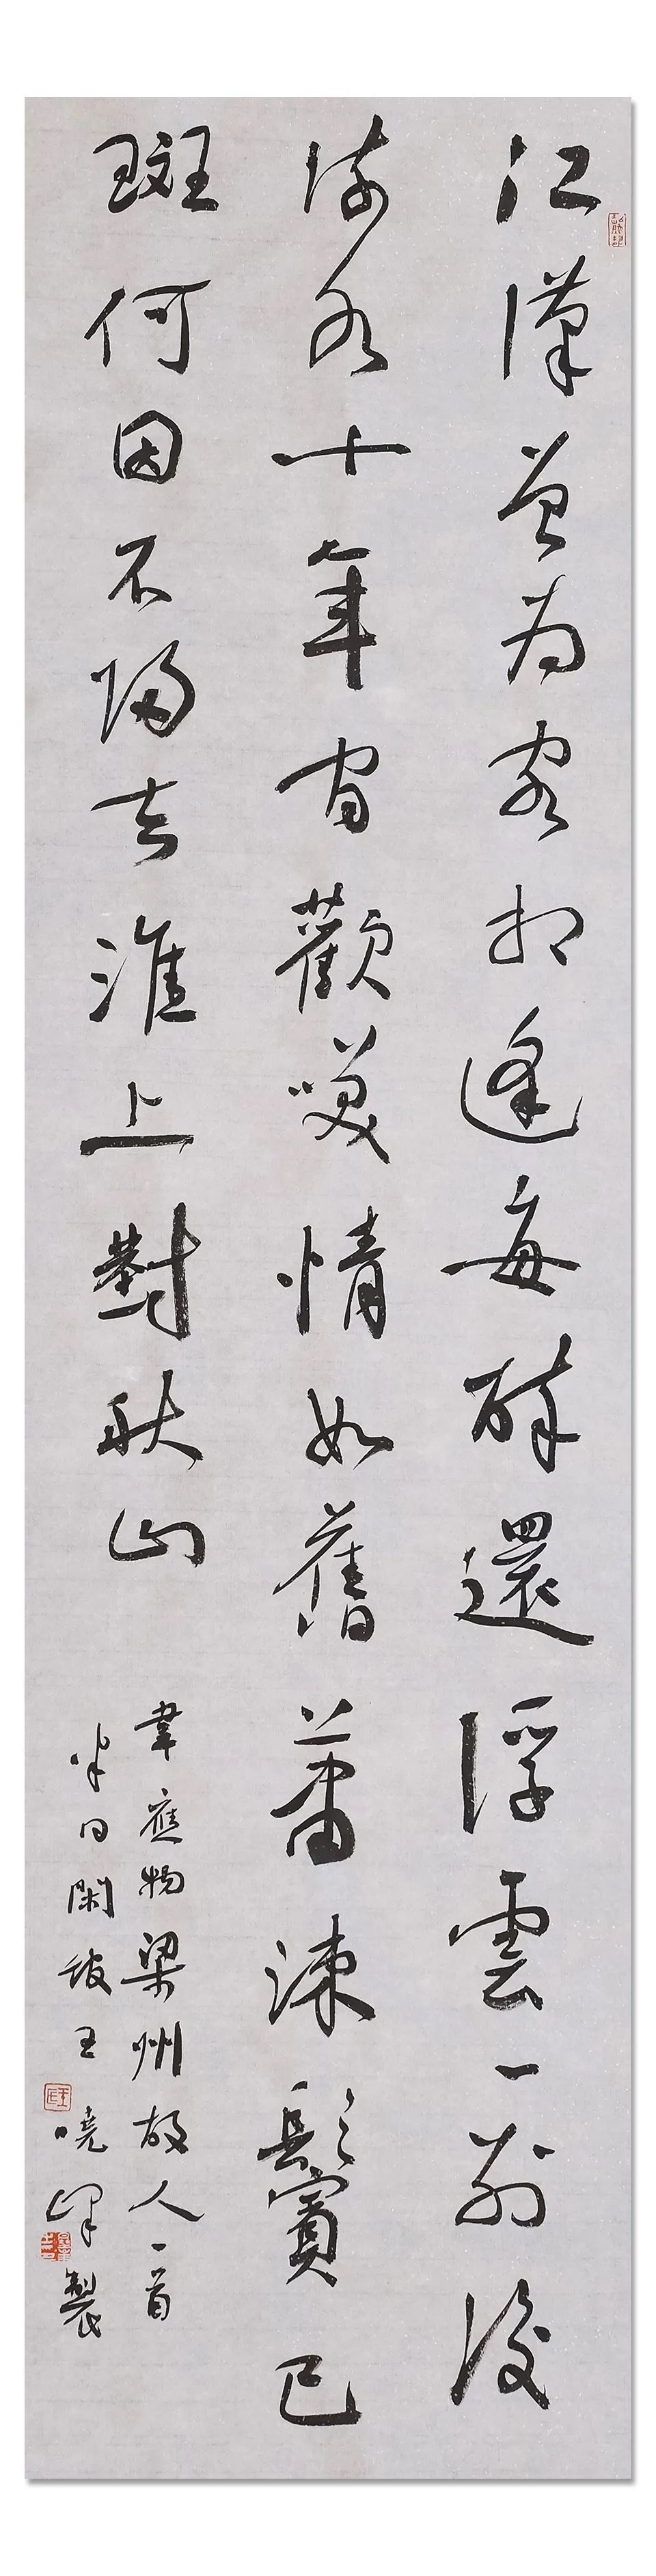 江漢曾為客相逢每醉還浮雲一別後
流水十年間歡咲情如舊蕭疎鬢已
斑何因不歸去淮上對秋山
韋應物梁州故人一首
半日閑王曉製